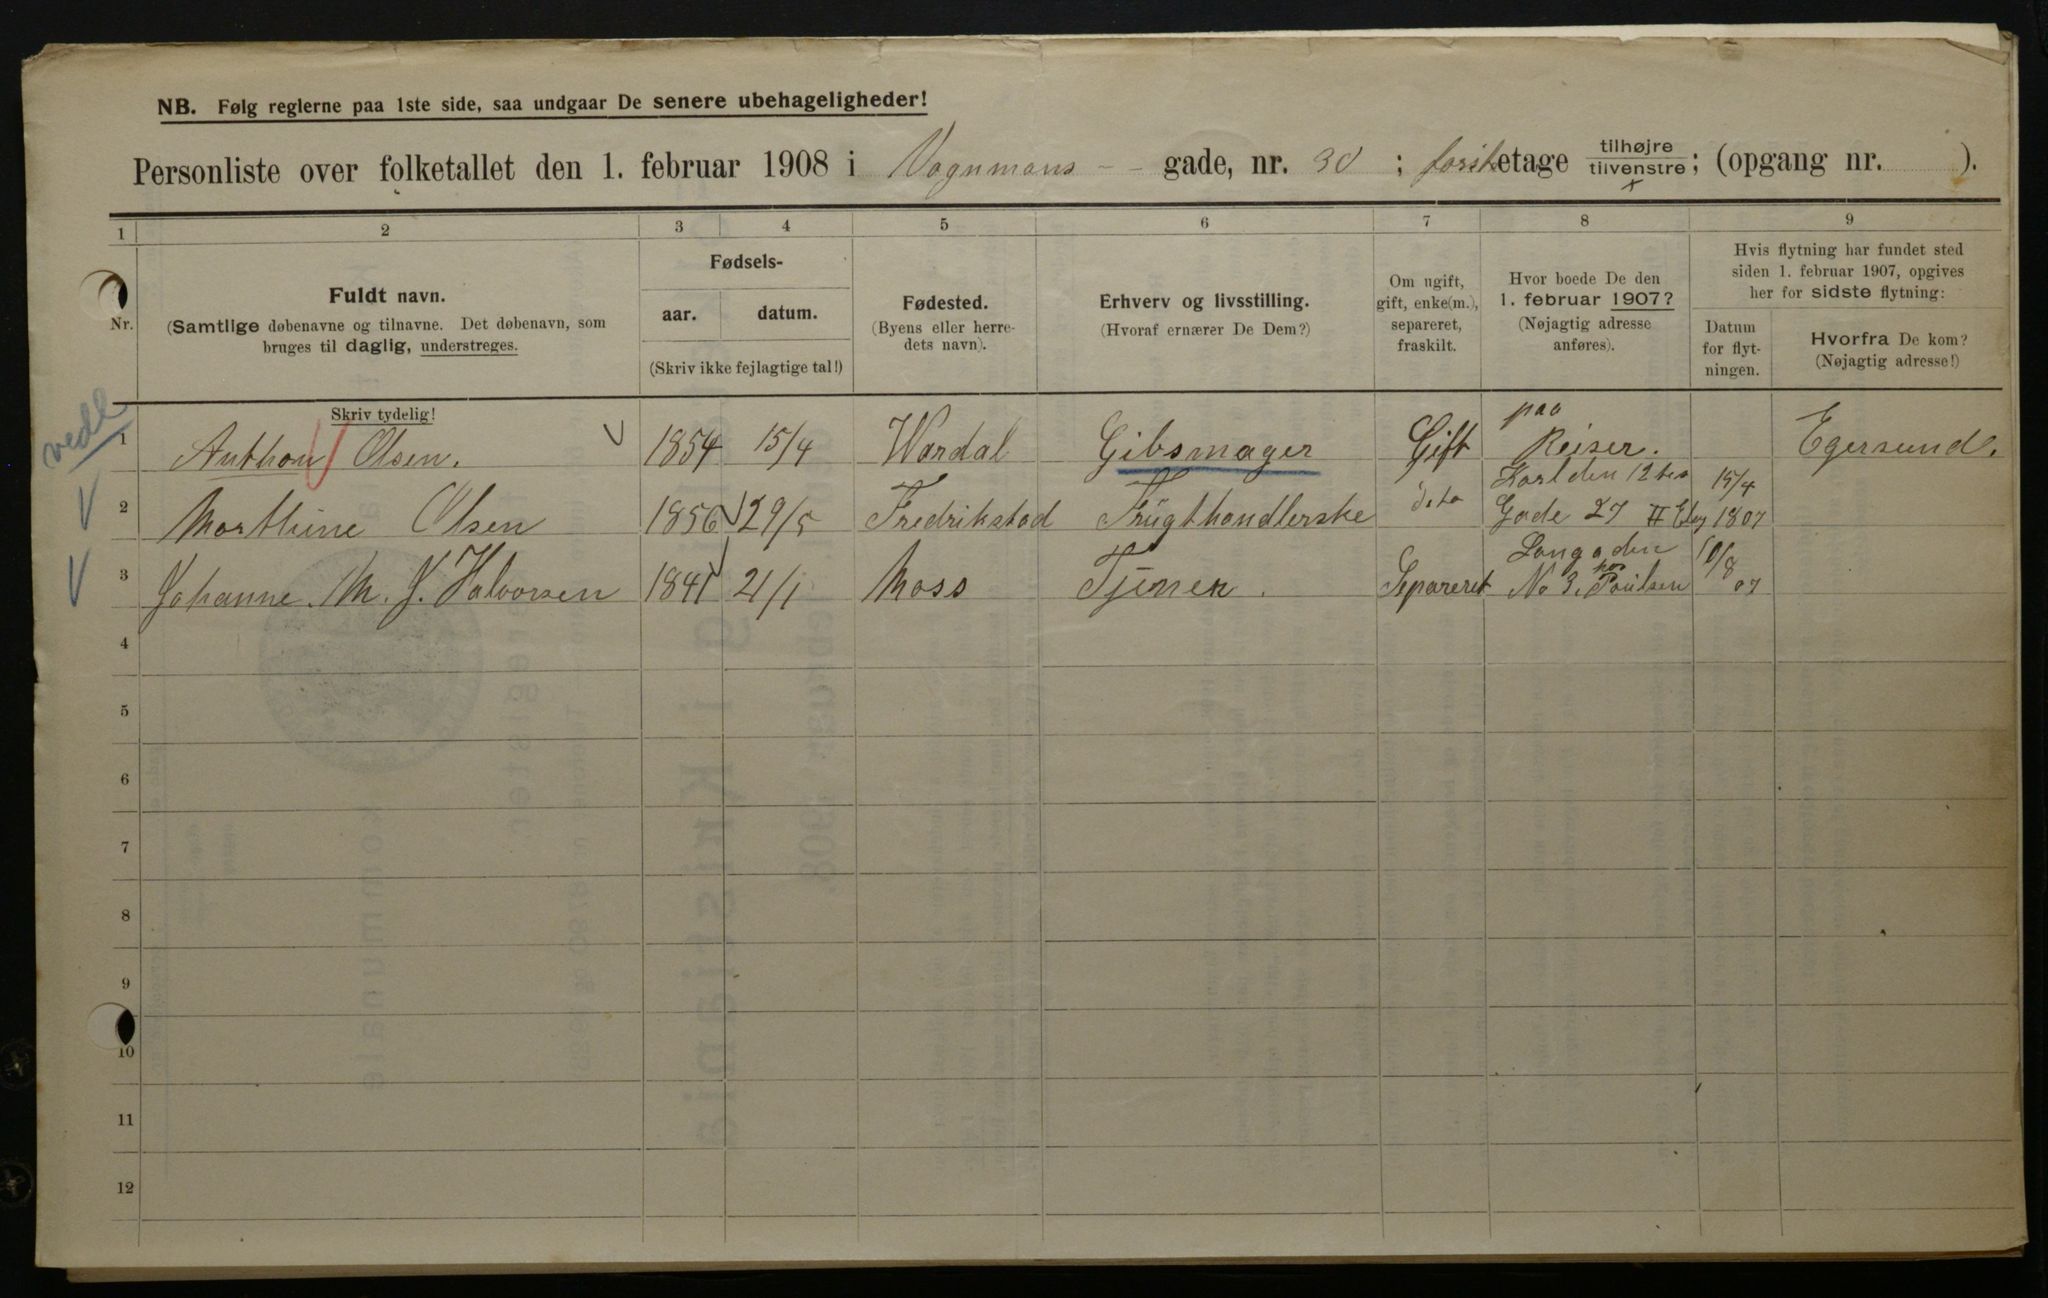 NB. Følg reglerne paa 1ste side, saa undgaar De senere ubehageligheder!
Personliste over folketallet den 1. februar 1908 i Vognmans - - gade, nr. 30 ; første etage tilhøjre tilvenstre; (opgang nr. ).
1 2 3 4 5 6 7 8 9
Nr.
Fuldt navn.
(Samtlige døbenavne og tilnavne. Det døbenavn, som
bruges til daglig, understreges.
Fødsels-
aar. datum.
(Skriv ikke fejlagtige tal!)
Fødested.
(Byens eller herre-
dets navn).
Erhverv og livsstilling.
(Hvoraf ernærer De Dem?)
Om ugift,
gift, enke(m.),
separeret,
fraskilt.
Hvor boede De den
1. februar 1907?
(Nøjagtig adresse
anføres).
Hvis flytning har fundet sted
siden 1. februar 1907, opgives
her for sidste flytning:
Datum
for flyt-
ningen.
Hvorfra De kom?
(Nøjagtig adresse!)
Skriv tydelig!
vedl
1 Anthon Olsen. 1854 15/4 Wardal Gibsmager Gift paa Reiser. Egersund.
2 Marthine Olsen 1856 29/5 Fredrikstad Frügthandlerske deto Karl den 12tes Gade 27 II Etag 15/4 1807
3 Johanne M. J. Halvorsen 1841 21/1 Moss Tjener. Separeret Langgaden No 3. hos Paulsen 10/8 07
4
5
6
7
8
9
10
11
12